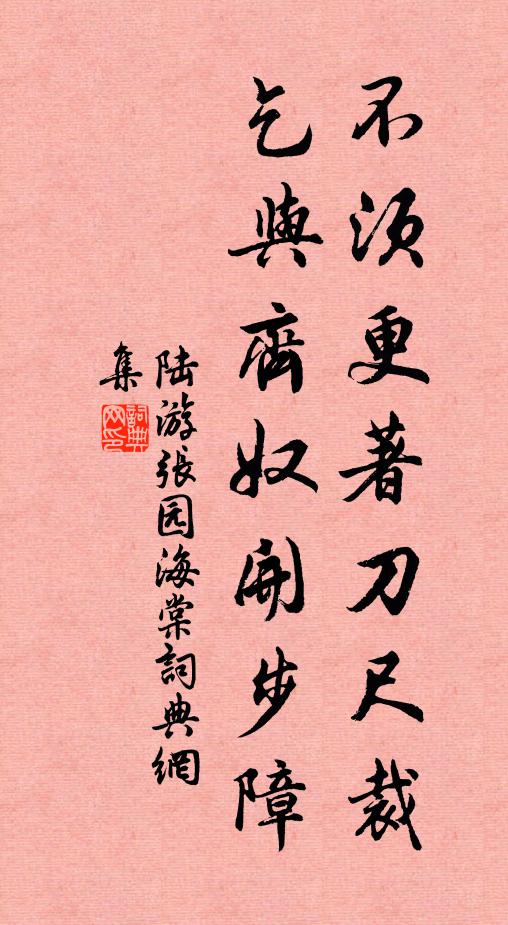 不須更著刀尺裁
乞與齊奴開步障
陆游張园海棠詞典網
集
詞典
网印